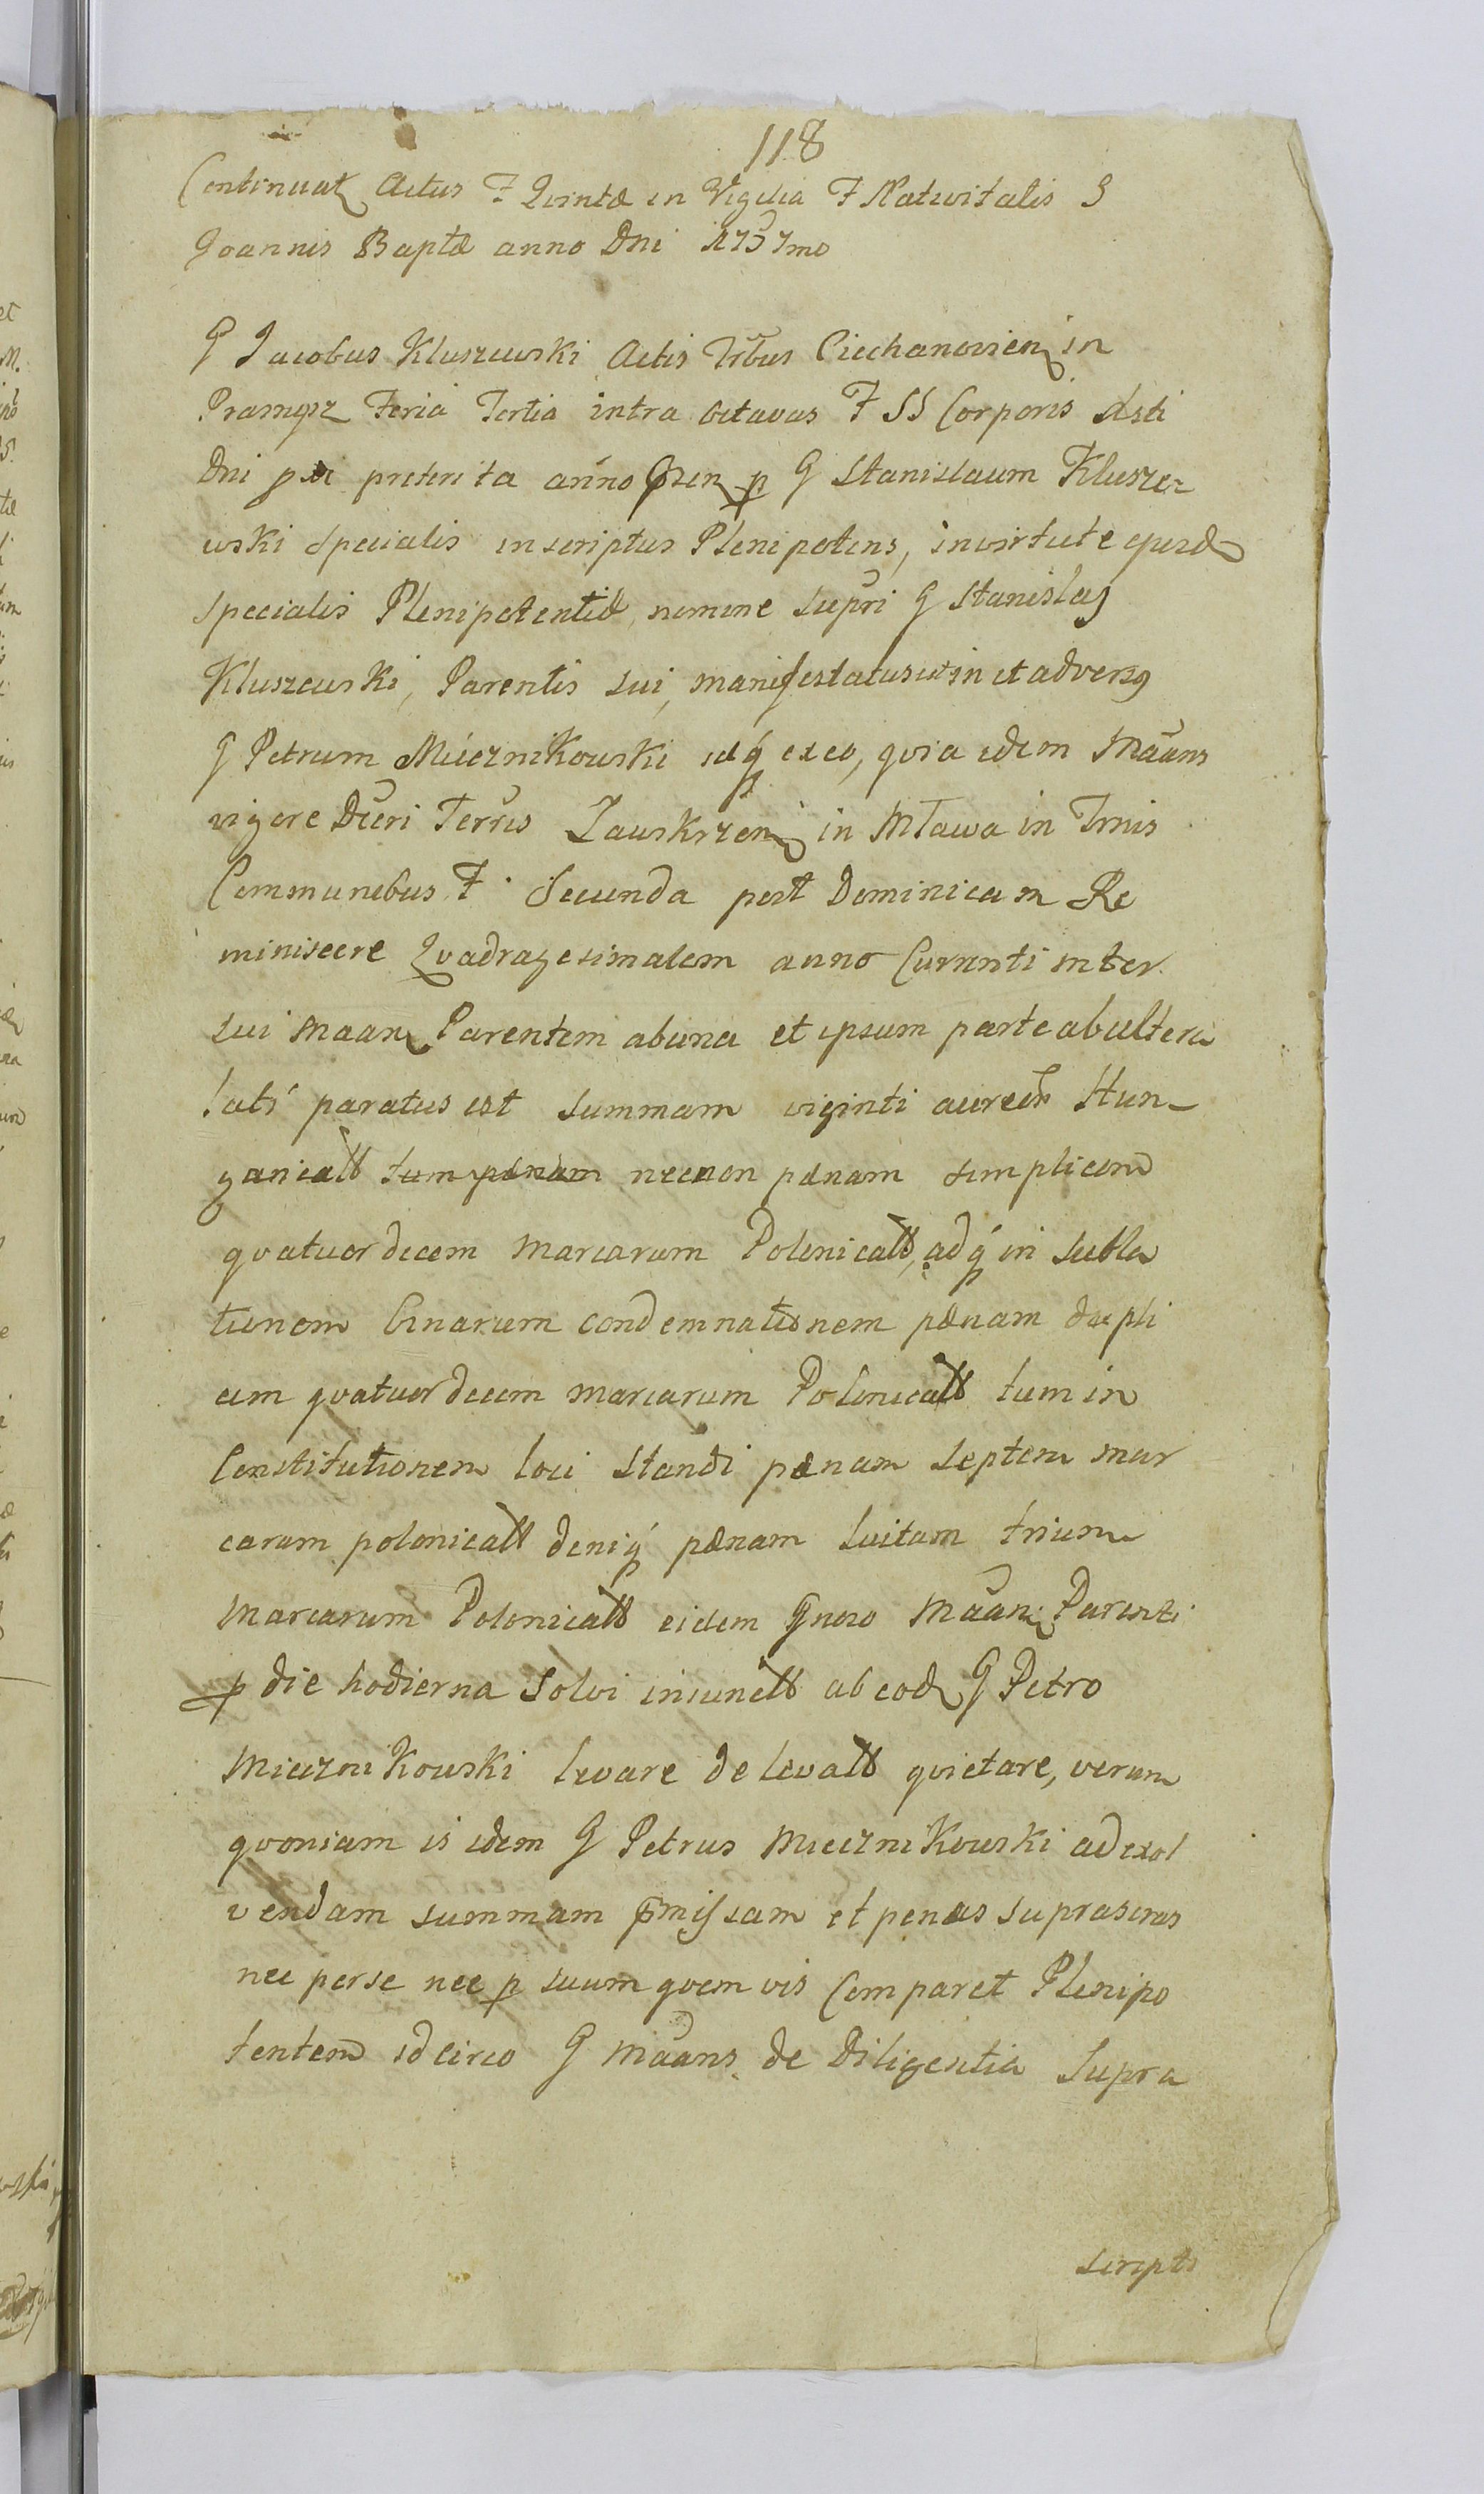 118
Continuatz Actus F Qvintæ in Vigilia F Nativitatis S
Joannis Baptæ anno Dni 1757mo
G Jacobus Kluszewski Actis Trbus Ciechanovien in
Pramgsz Feria Tertia intra octavas F SS Corporis
Dni preterita anno p G Stanislaum Klusze=
wski Specialis inscriptus Plenipotens, invirtute ejusd
Specialis Plenipotentiæ, nomine supri G Stanislaj
Kluszewski, Parentis sui, manifestatus est in et adversg
G Petrum Miecznikowski idq ex eo, qvia idem Maans
vigore Dcri Terris Zawskrzen in Mława in Trnis
Communibus F Secunda post Dominicam Re
miniscere Qvadragesimalem anno Curranti inter
sui Maan Parentem abuna et ipsum parte abultera
lats paratus est summam viginti aureor Hun-
garicall tum pænam necnon pænam simplicem
qvatuordecem marcarum Polonicall, adq in subla
tionem binarum condemnationem pænam dupli
cem qvatuordecem marcarum Polonicall tum in
Constitutionem loci standi pænam septem mar
carum polonicall deniq pænam luitam trium
marcarum Polonicall eidem Gnoso Maan Parenti
p die hodierna solvi iniunctt ab eod G Petro
Mieczni Kowski levare de levatt qvietare, verum
qvoniam is idem G Petrus Mieczni Kowski ad exol
vendam summam pmissam et penas suprascras
nec per se nec p suum qvem vis Comparet Plenipo
tentem idcirco G Maans de Diligentia supra
scripta